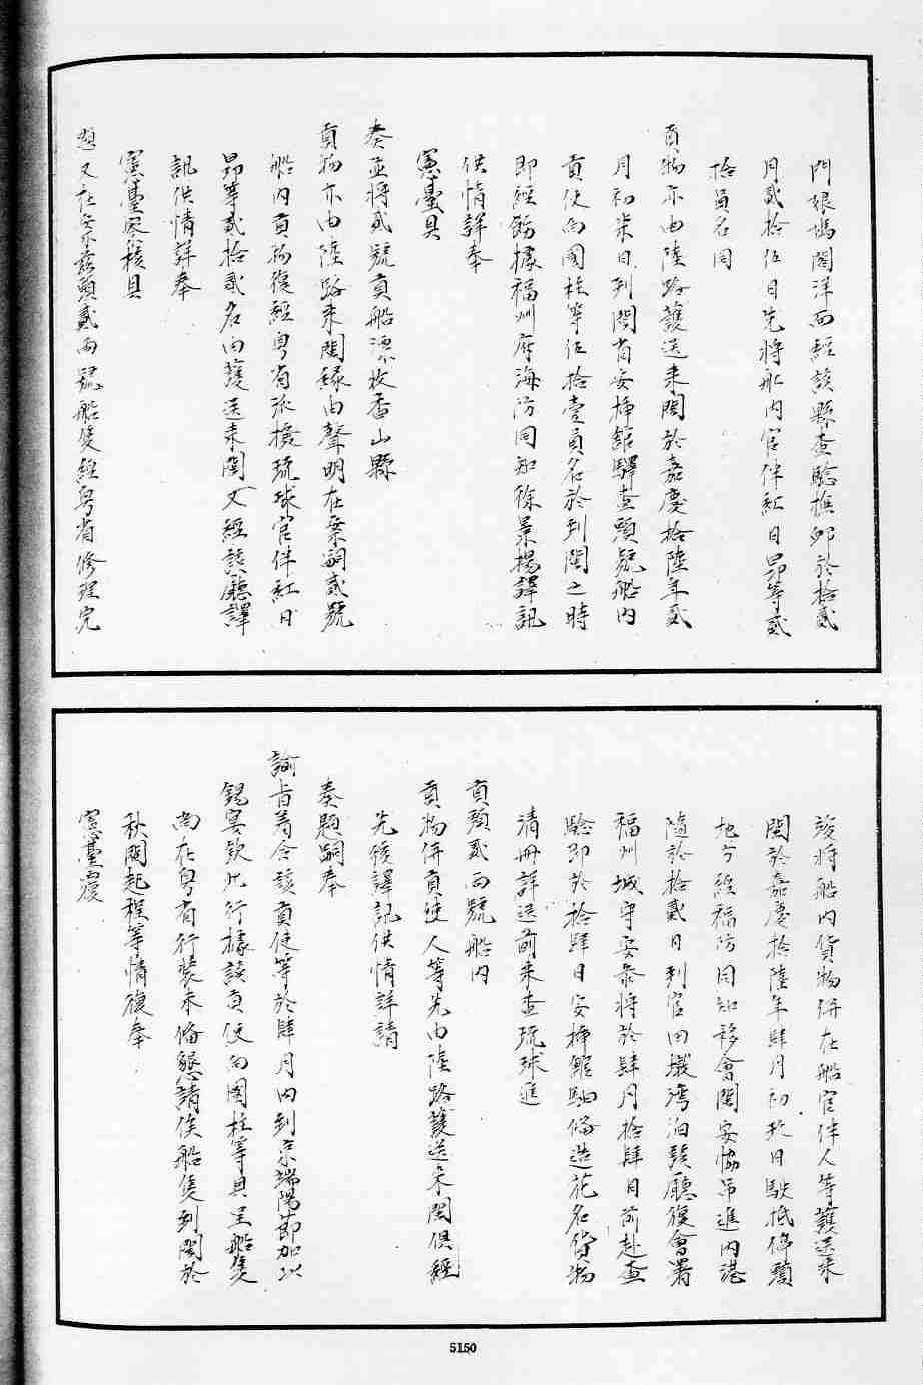 門娘媽閣洋面經該縣查騐撫卹於拾貳
月貳拾伍日先將船內官伴紅日昂等貳
拾員名同
貢物亦由陸路護送來閩於嘉慶拾陸年貳
月初柒日到閩省安揷館驛查頭號船內
貢使向國柱等伍拾壹員名於到閩之時
即經飭據福州府海防同知徐景揚譯訊
供情詳奉
憲臺具
奏並將貳號貢船漂收香山縣
貢物亦由陸路來閩緣由聲明在案嗣貳號
船內貢物復經粵省派撥琉球官伴紅日
昂等貳拾貳名由護送來閩又經該廳譯
訊供情詳奉
憲臺察核具
題又在案茲頭貳両號船隻經粵省修理完
竣將船內貨物併在船官伴人等護送來
閩於嘉慶拾陸年肆月初玖日駛抵停頭
地方經福防同知移會閩安協吊進內港
隨於拾貳日到官田壩灣泊該廳復會署
福州城守安叅將於肆月拾肆日前赴查
騐即於拾肆日安揷館驛條造花名貨物
清冊詳送前來查琉球進
貢頭貳両號船內
貢物併貢使人等先由陸路護送來閩俱經
先後譯訊供情詳請
奏題嗣奉
諭旨着令該貢使等於肆月內到京端陽節加以
錫宴欽此行據該貢使向國柱等具呈船隻
尚在粵省行裝未備懇請俟船隻到閩於
秋間起程等情復奉
憲臺覆
5150